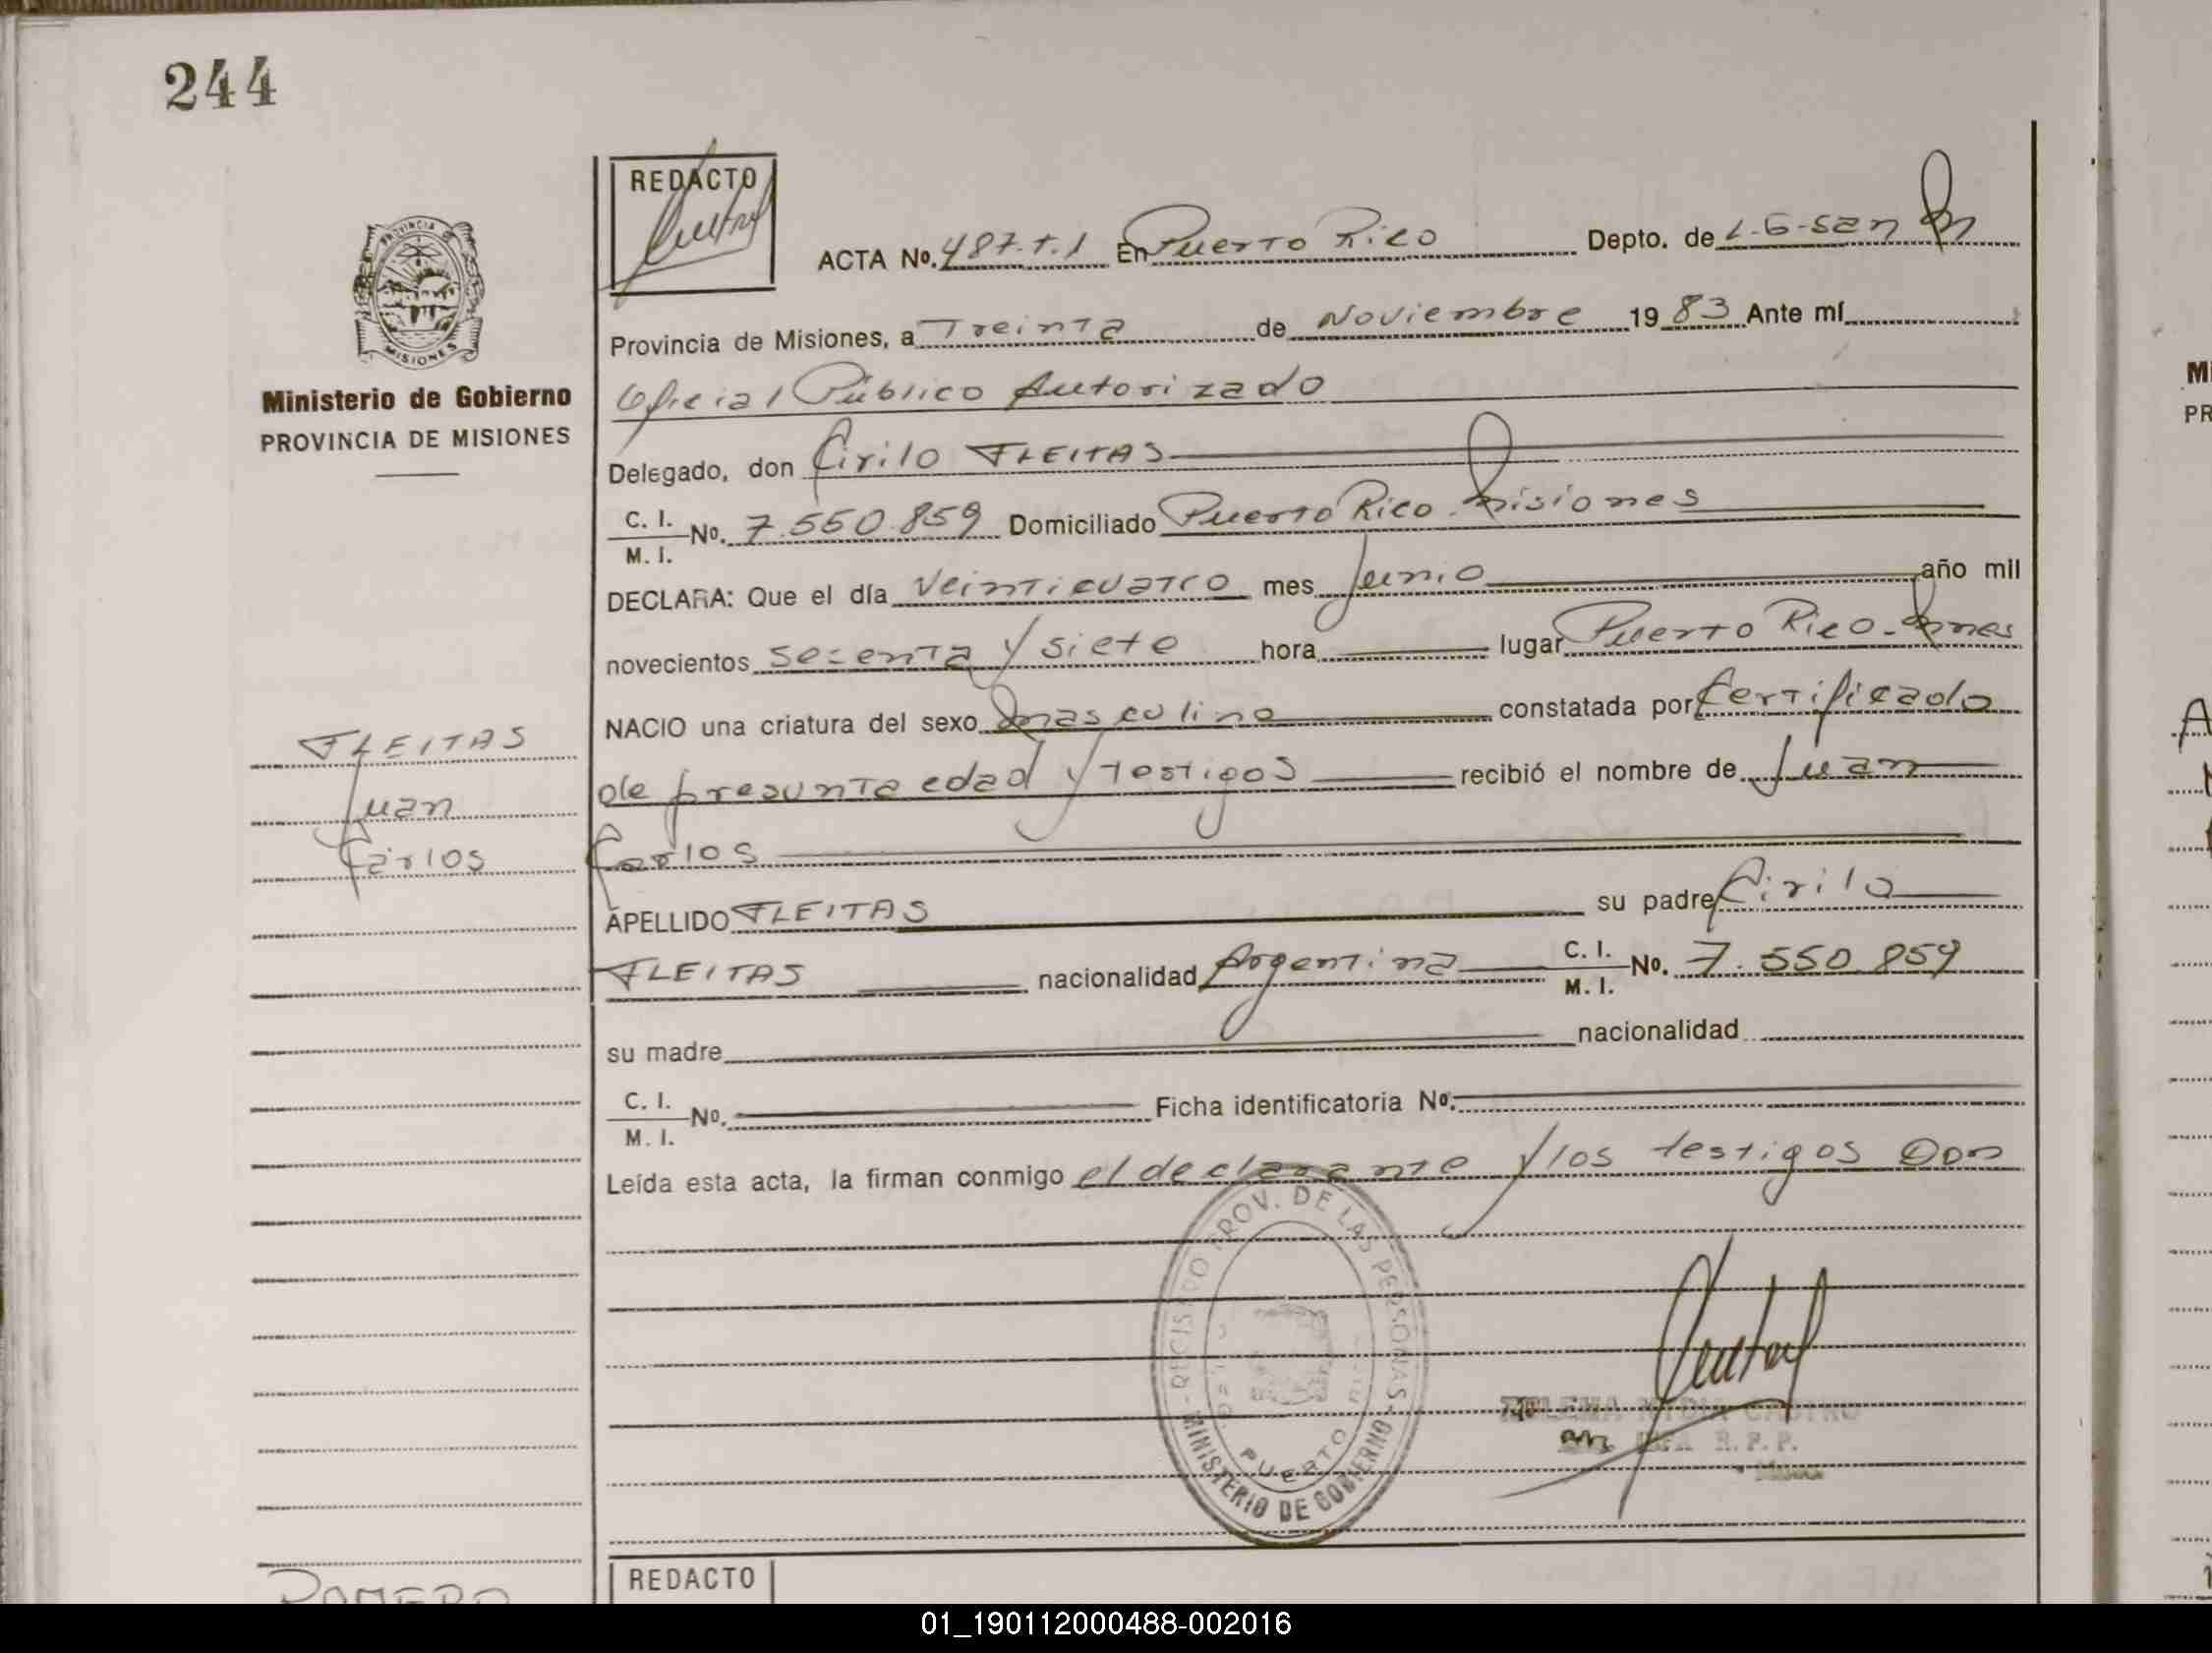 244
REDACTO
ACTA Nº. 487.T.1 En Puerto Rico Depto. de L-G-San M
Provincia de Misiones, a Treinta de Noviembre 1983 Ante mí
Oficial Público Autorizado
Ministerio de Gobierno
PROVINCIA DE MISIONES
Delegado, don Cirilo FLEITAS
C. I.
M. I. Nº. 7.550.859 Domiciliado Puerto Rico-Misiones
DECLARA: Que el día Veinticuatro mes Junio año mil
novecientos Secenta y siete hora lugar Puerto Rico-Mnes
NACIO una criatura del sexo Masculino constatada por Certificado
de presunta edad y testigos recibió el nombre de Juan
Carlos
FLEITAS
Juan
Carlos
APELLIDO FLEITAS su padre Cirilo
FLEITAS nacionalidad Argentina C. I.
M. I. Nº. 7.550.859
su madre nacionalidad
C. I.
M. I. Nº. Ficha identificatoria Nº.
Leída esta acta, la firman conmigo el declarante y los testigos Don
REGISTRO PROV. DE LAS PERSONAS
MINISTERIO DE GOBIERNO
PUERTO
CASTRO
R. P. P.
REDACTO
ROMERO
MISIONES
PROVINCIA DE
01_190112000488-002016